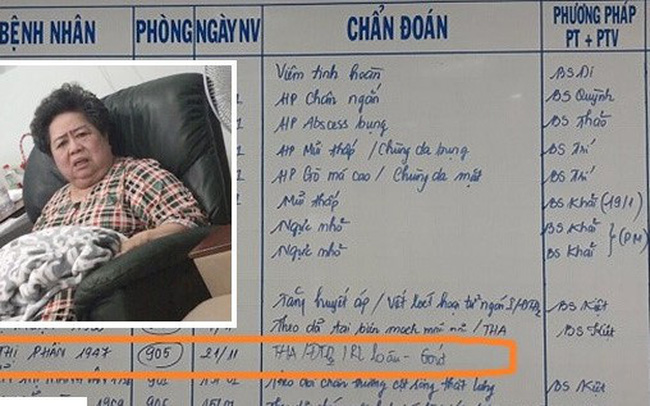 BỆNH NHÂN PHÒNG NGÀY NV CHẨN ĐOÁN PHƯƠNG PHÁP PT + PTV
Viêm tinh hoàn BS Di
HP Chân ngắn BS Quỳnh
HP Abscess bụng BS Thảo
HP Mũi thấp / Chùng da bụng BS Trí
HP Gò má cao / Chùng da mặt BS Trí
Mũi thấp BS Khải (19/1)
Ngực nhỏ BS Khải
Ngực nhỏ BS Khải (PM)
Tăng huyết áp / Vết loét hoại tử ngón BS Kiệt
Theo dõi tai biến mạch máu não / THA BS Kiệt
THỊ PHẤN 1947 905 21/11 THA /ĐTĐ / RL
Theo dõi chấn thương cột sống thắt lưng BS Kiệt